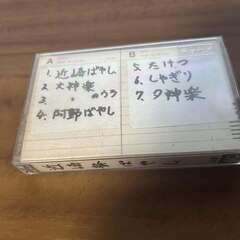 A
1. 近崎ばやし
2. 大神楽
3. 〃 のうら
4. 阿野ばやし
B
5. たけつ
6. しゃぎり
7. 夕神楽
近崎 ばやし